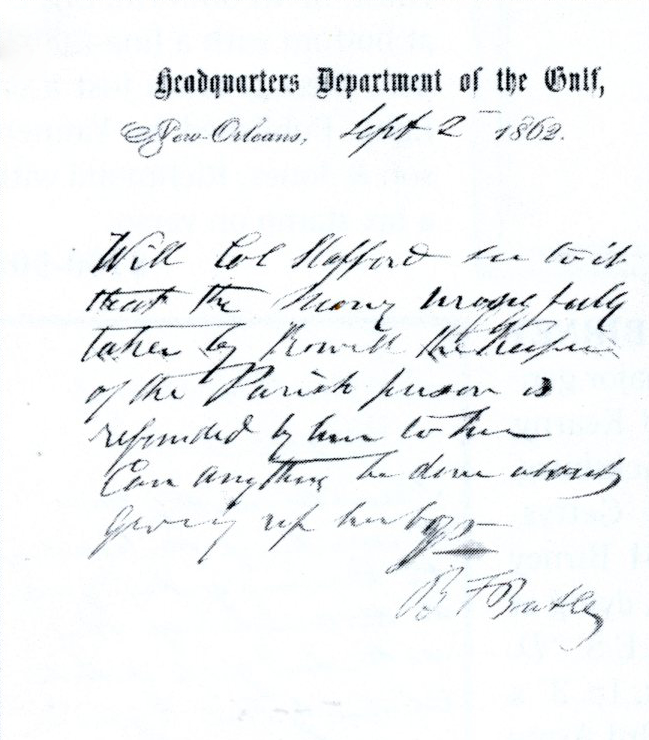 Headquarters Department of the Gulf,
New Orleans, Sept 2 1862.
Will Col Stafford see to it
that the money wrongfully
taken by Rowell the Keeper
of the Parish prison is
refunded by him to her
Can anything be done about
giving up her boy
B F Butler